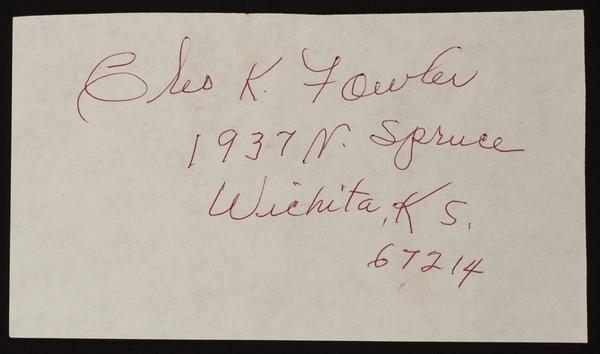 Cleo K. Fowler
1937 N. Spruce
Wichita, KS.
67214